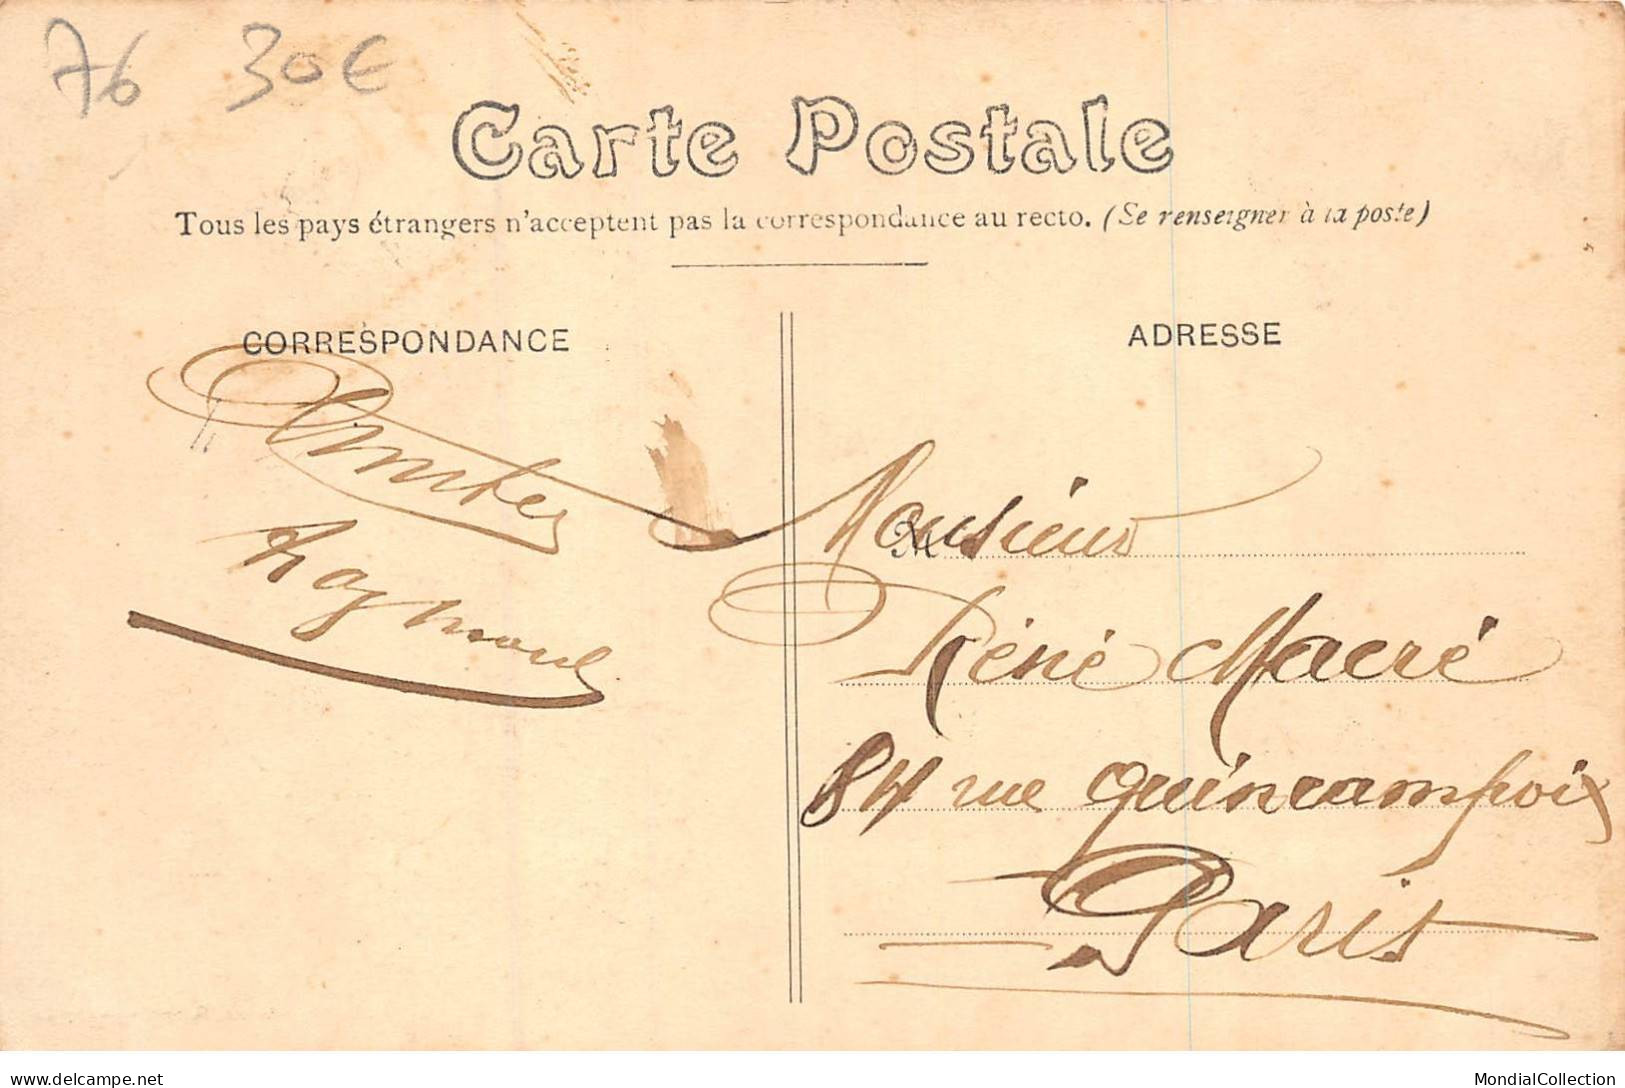 76 30€
Carte Postale
Tous les pays étrangers n'acceptent pas la correspondance au recto. (Se renseigner à la poste)
CORRESPONDANCE
ADRESSE
Amitiés
Raymond
Monsieur
Réné Macré
84 rue Quincampoix
Paris
delcampe.net
MondialCollection